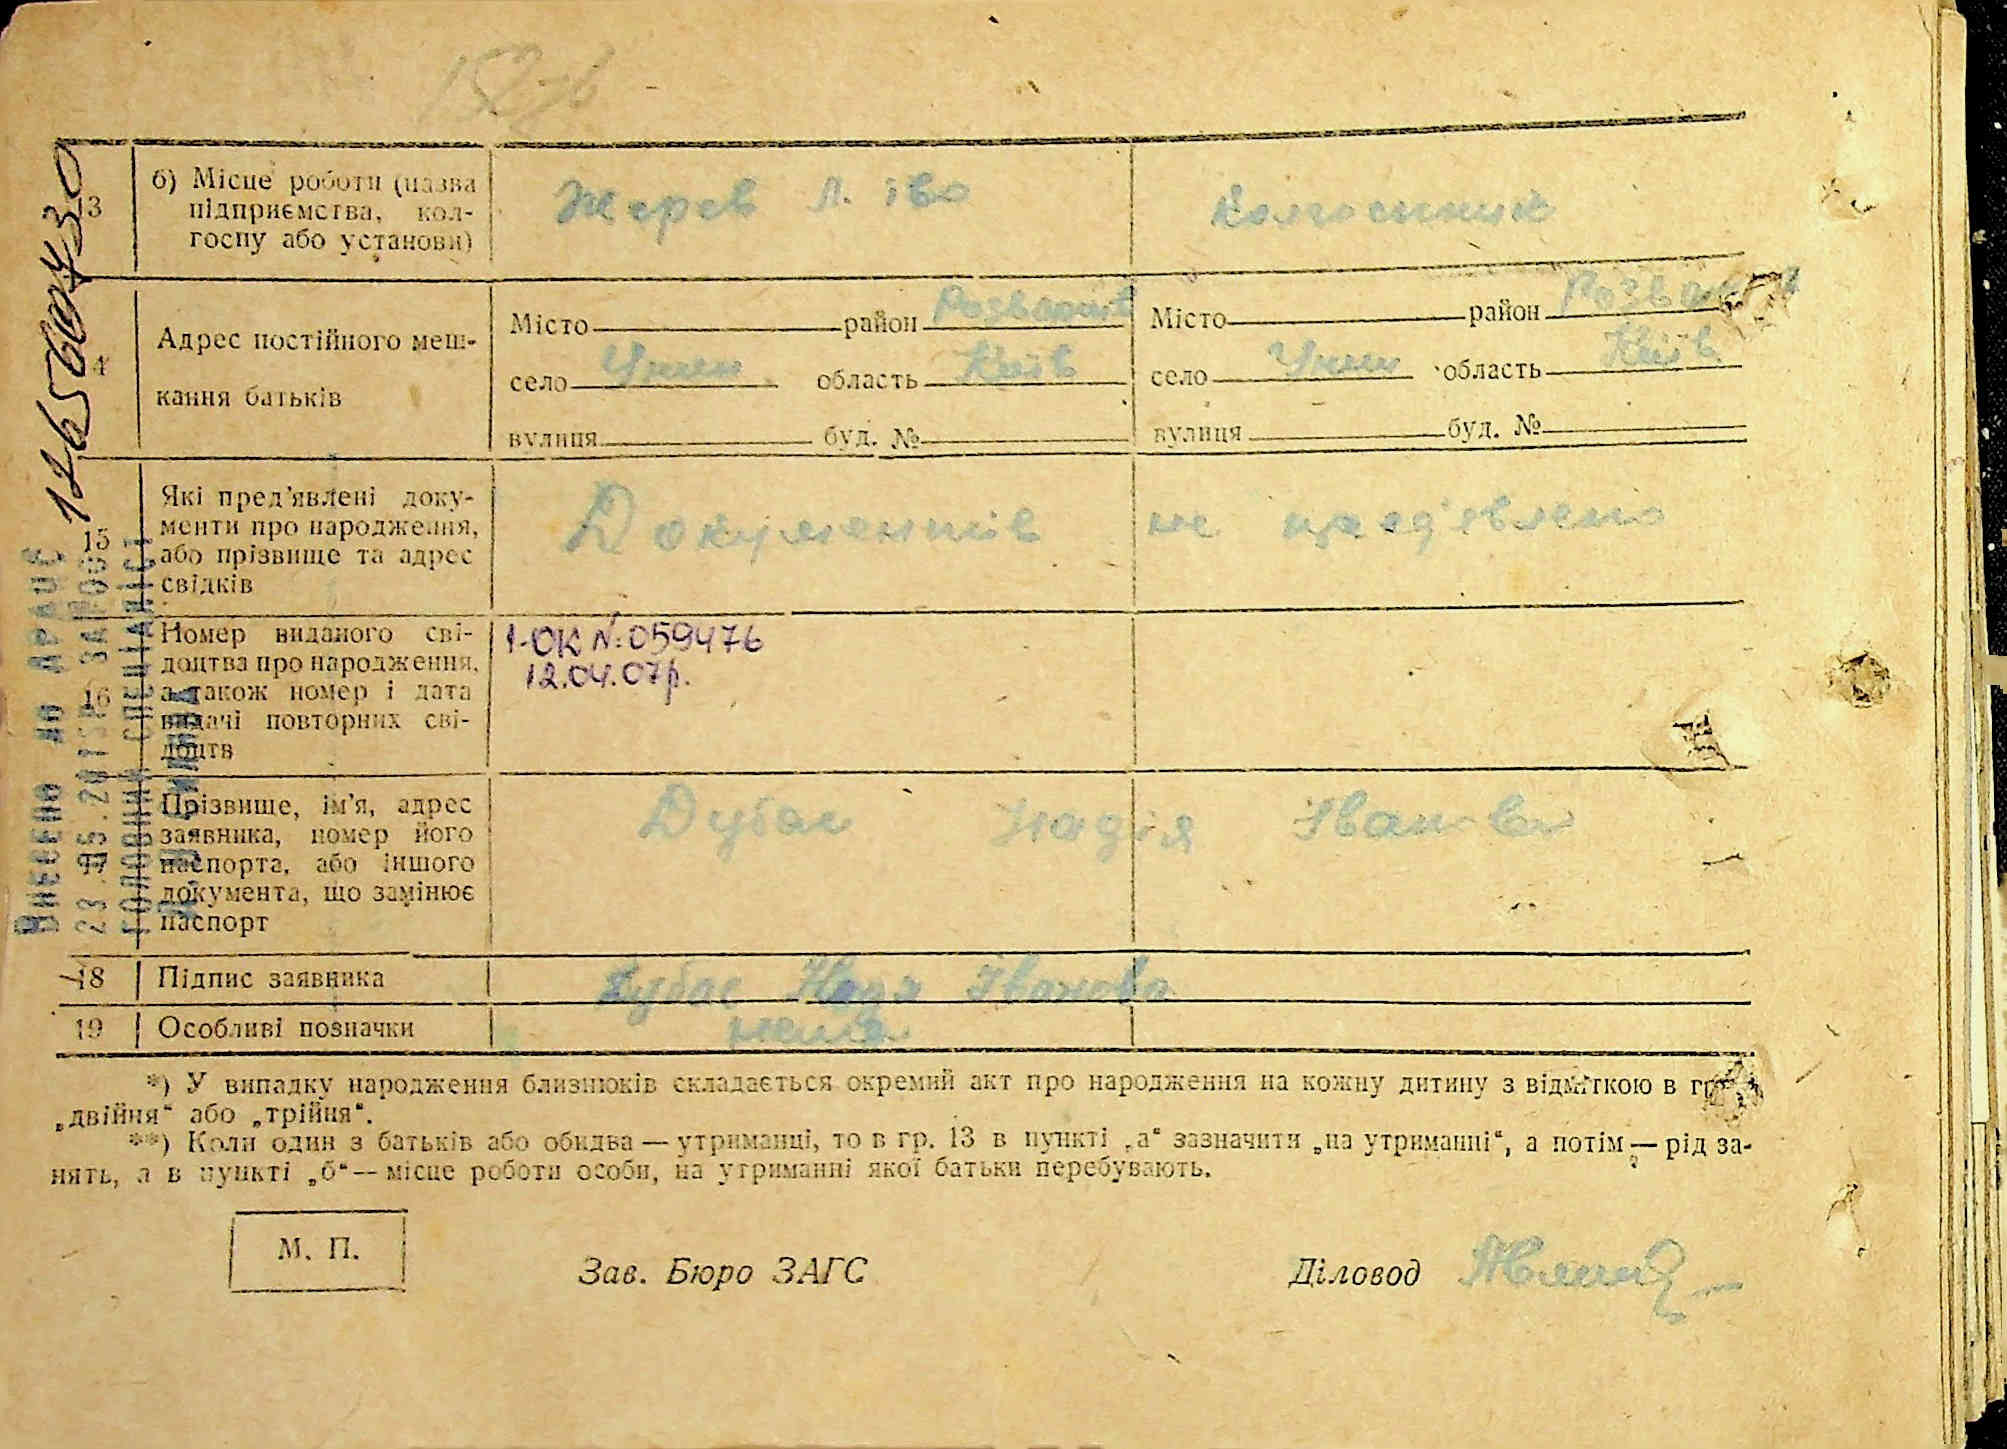 152-б
13
б) Місце роботи (назва
підприємства, кол-
госпу або установи)
Жерев л. іво
Колгоспник
4
Адрес постійного меш-
кання батьків
Місто район Розважів
село Унин область Київ
вулиця буд. №
Місто район
село Унин область Київ
вулиця буд. №
15
Які пред'явлені доку-
менти про народження,
або прізвище та адрес
свідків
Документів не пред'явлено
16
Номер виданого сві-
доцтва про народження,
а також номер і дата
видачі повторних сві-
доцтв
1-ОК №:059476
12.04.07р.
17
Прізвище, ім'я, адрес
заявника, номер його
паспорта, або іншого
документа, що замінює
паспорт
Дубас Надія Іванівна
18
Підпис заявника
Дубас Надя Іванова
19
Особливі позначки
нема
*) У випадку народження близнюків складається окремий акт про народження на кожну дитину з відміткою в гр.
„двійня“ або „трійня“.
**) Коли один з батьків або обидва — утриманці, то в гр. 13 в пункті „а“ зазначити „на утриманні“, а потім — рід за-
нять, а в пункті „б“ — місце роботи особи, на утриманні якої батьки перебувають.
М. П.
Зав. Бюро ЗАГС
Діловод
ВНЕСЕНО ДО ДРАЦС
ГОЛОВНИЙ СПЕЦІАЛІСТ